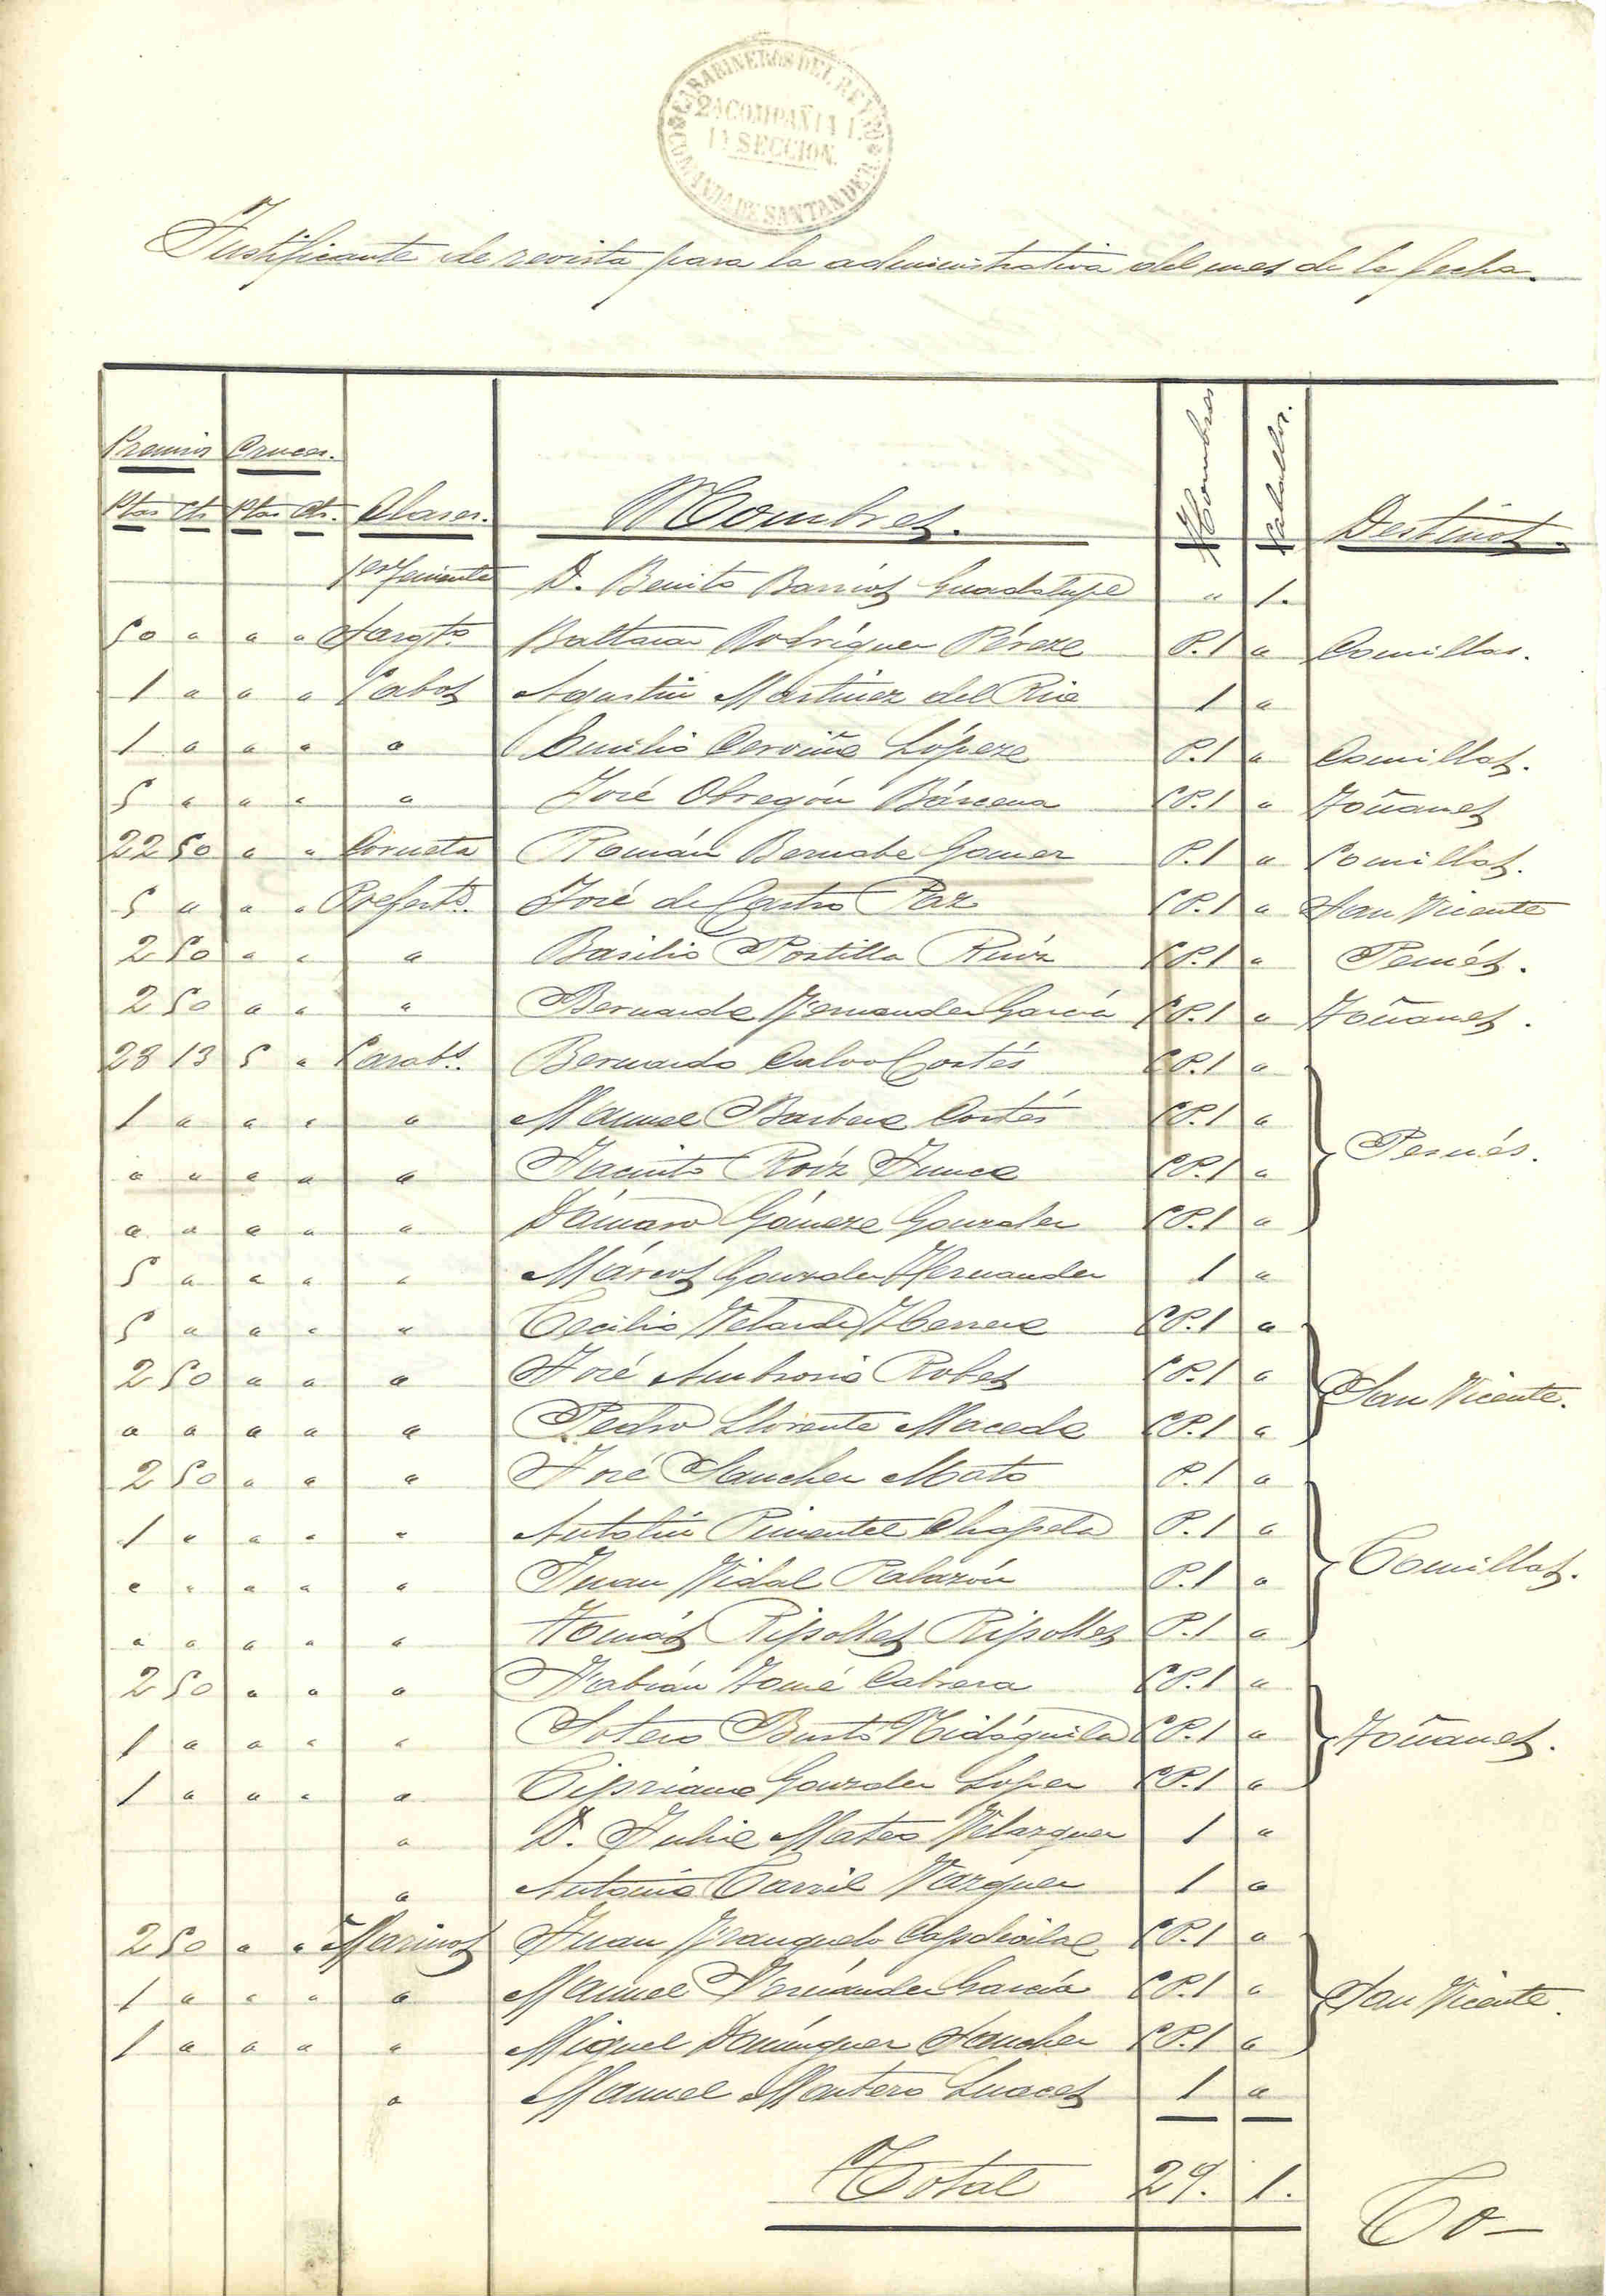 CARABINEROS DEL REYNO
2ª COMPAÑIA
1ª SECCION.
COMANDA DE SANTANDER
Justificante de revista para la administrativa del mes de la fecha.
Premios Cruces. Hombres Caballos.
Ptas Cts Ptas Cts. Clases. Nombres. Destinos.
1er Teniente D. Benito Barrios Guadalupe " 1.
50 " " " Sargto. Baltasar Rodríguez Péreze P.1 " Comillas.
1 " " " Cabos Agustín Martinez del Rio 1 "
1 " " " " Emilio Cerviño Lópeze P.1 " Comillas.
5 " " " " José Obregón Bárcena CP.1 " Toñanes
22 50 " " Corneta Román Bernabe Gomez P.1 " Comillas.
5 " " " Prefert. José de Castro Paz CP.1 " San Vicente
2 50 " " " Basilio Postilla Ruiz CP.1 " Pesués.
2 50 " " " Bernardo Fernandez García CP.1 " Toñanes.
28 13 5 " Carabs. Bernardo Calvo Cortés CP.1 "
1 " " " " Manuel Barbera Cortés CP.1 "
" " " " " Jacinto Roiz CP.1 " Pesués.
" " " " " Dámaso Gómeze Gonzalez CP.1 "
5 " " " " Márcos Gonzalez Hernandez 1 "
5 " " " " Cecilio Velarde Herrera CP.1 "
2 50 " " " José Ambrosio Robes CP.1 " San Vicente.
" " " " " Pedro Llorente Maceda CP.1 "
2 50 " " " José Sanchez Mato P.1 "
1 " " " " Antolín Pimentel Chapela P.1 "
" " " " " Juan Vidal Palazón P.1 " Comillas.
" " " " " Tomás Ripolles Ripolles P.1 "
2 50 " " " Fabián Tomé Cabrera CP.1 "
1 " " " " Sotero Busto CP.1 " Toñanes.
1 " " " " Cipriano Gonzalez Lopez CP.1 "
" D. Julio Mateo Velazquez 1 "
" Antonio Carril Vazquez 1 "
2 50 " " Marinos Juan Franquelo Capdevila CP.1 "
1 " " " " Manuel Fernández García CP.1 " San Vicente.
1 " " " " Miguel Domínguez Sanchez CP.1 "
" Manuel Montero Luaces 1 "
Total 29. 1.
Co-